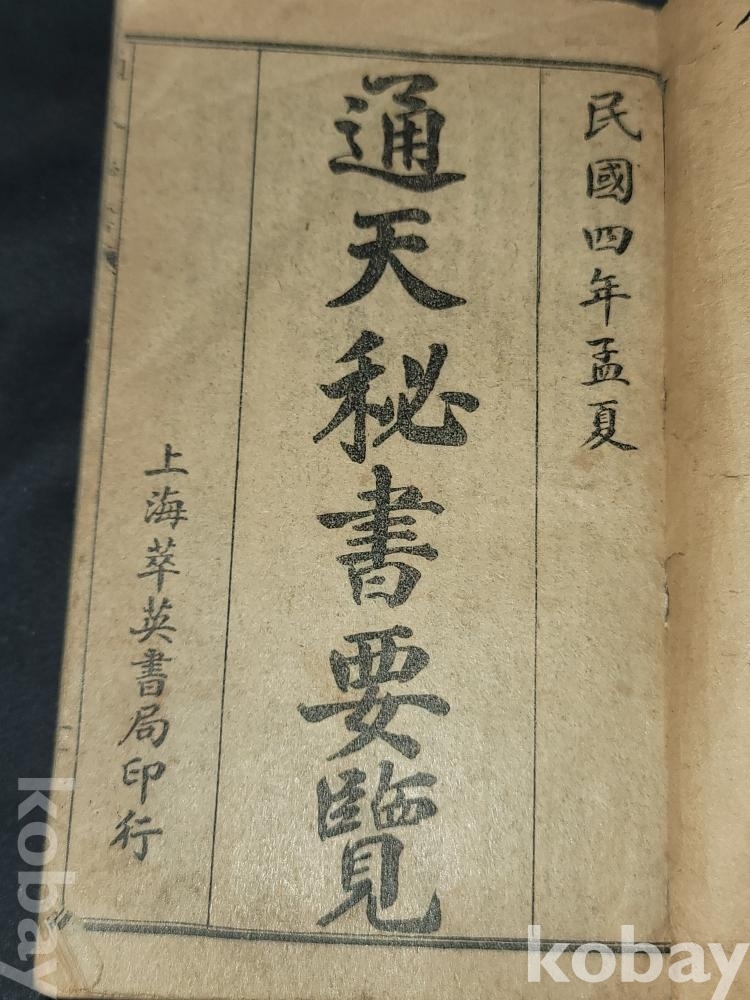 民國四年孟夏
通天秘書要覽
上海萃英書局印行
kobay
kobay